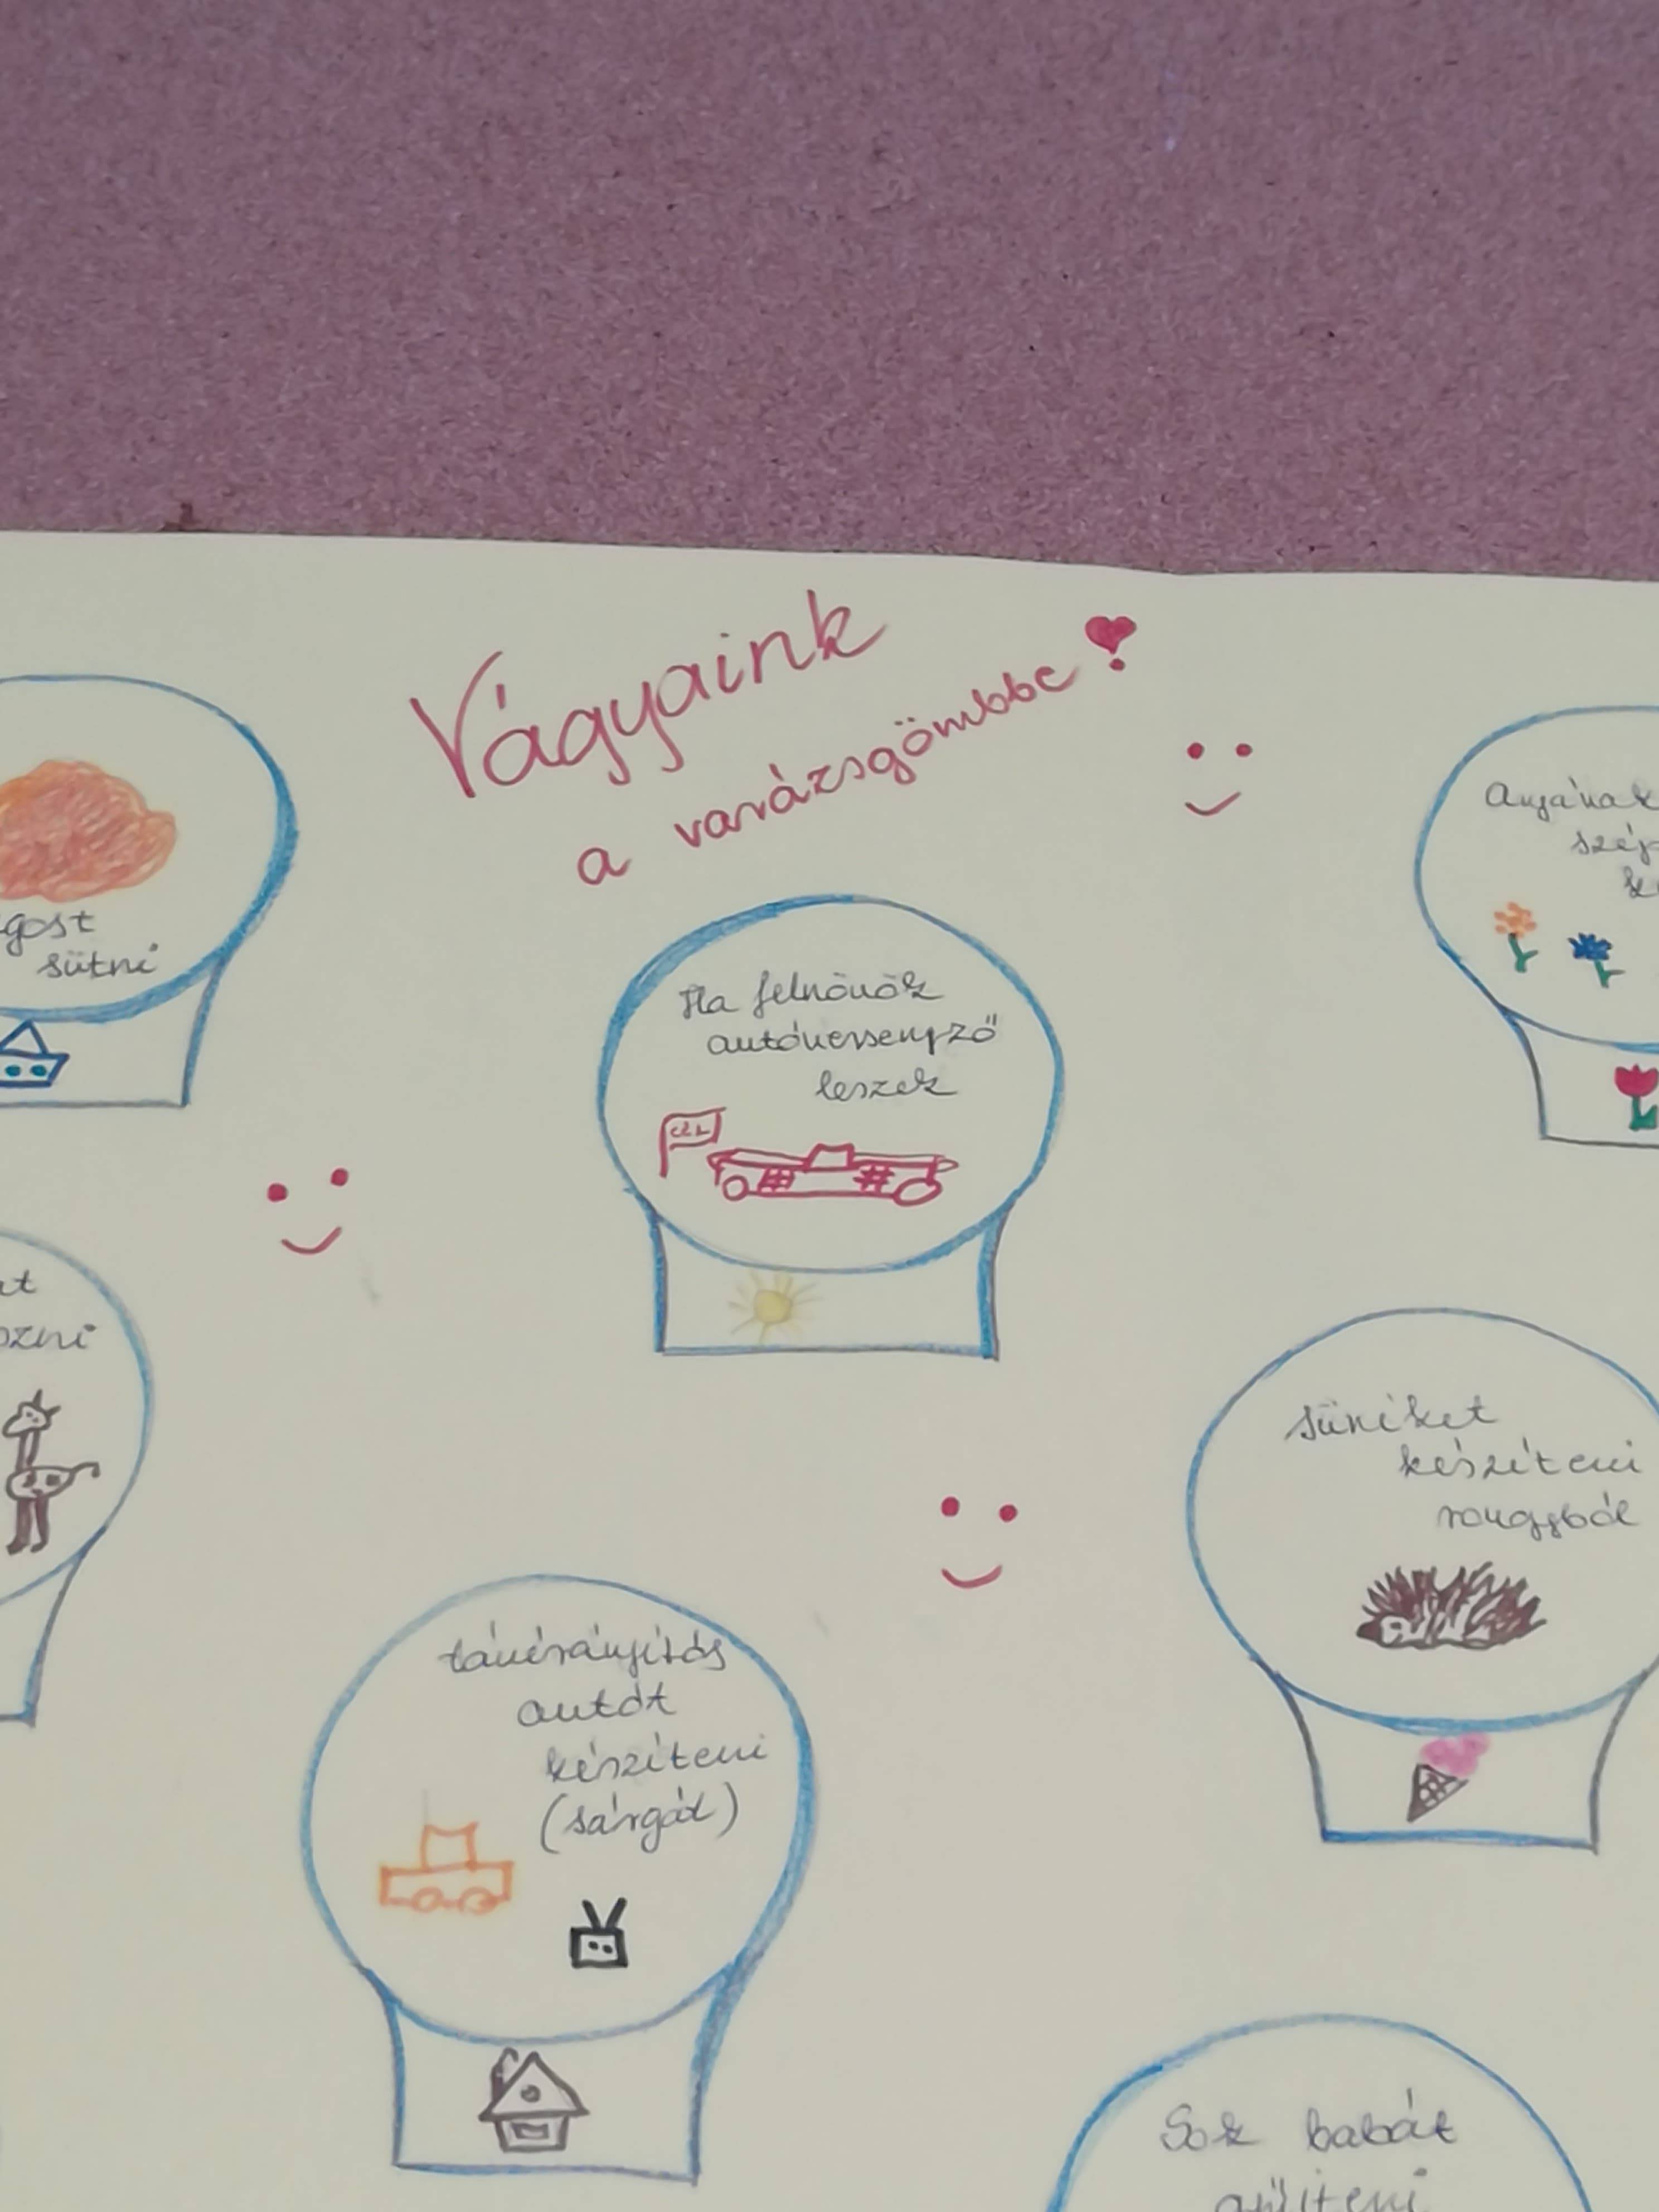 Vágyaink
a varázsgömbbe
gost
sütni
Ha felnövök
autóversenyző
leszek
Cél
Anyának
szép
at
Süniket
készíteni
rongyból
távirányítós
autót
készíteni
(sárgát)
Sok babát
gyűjteni